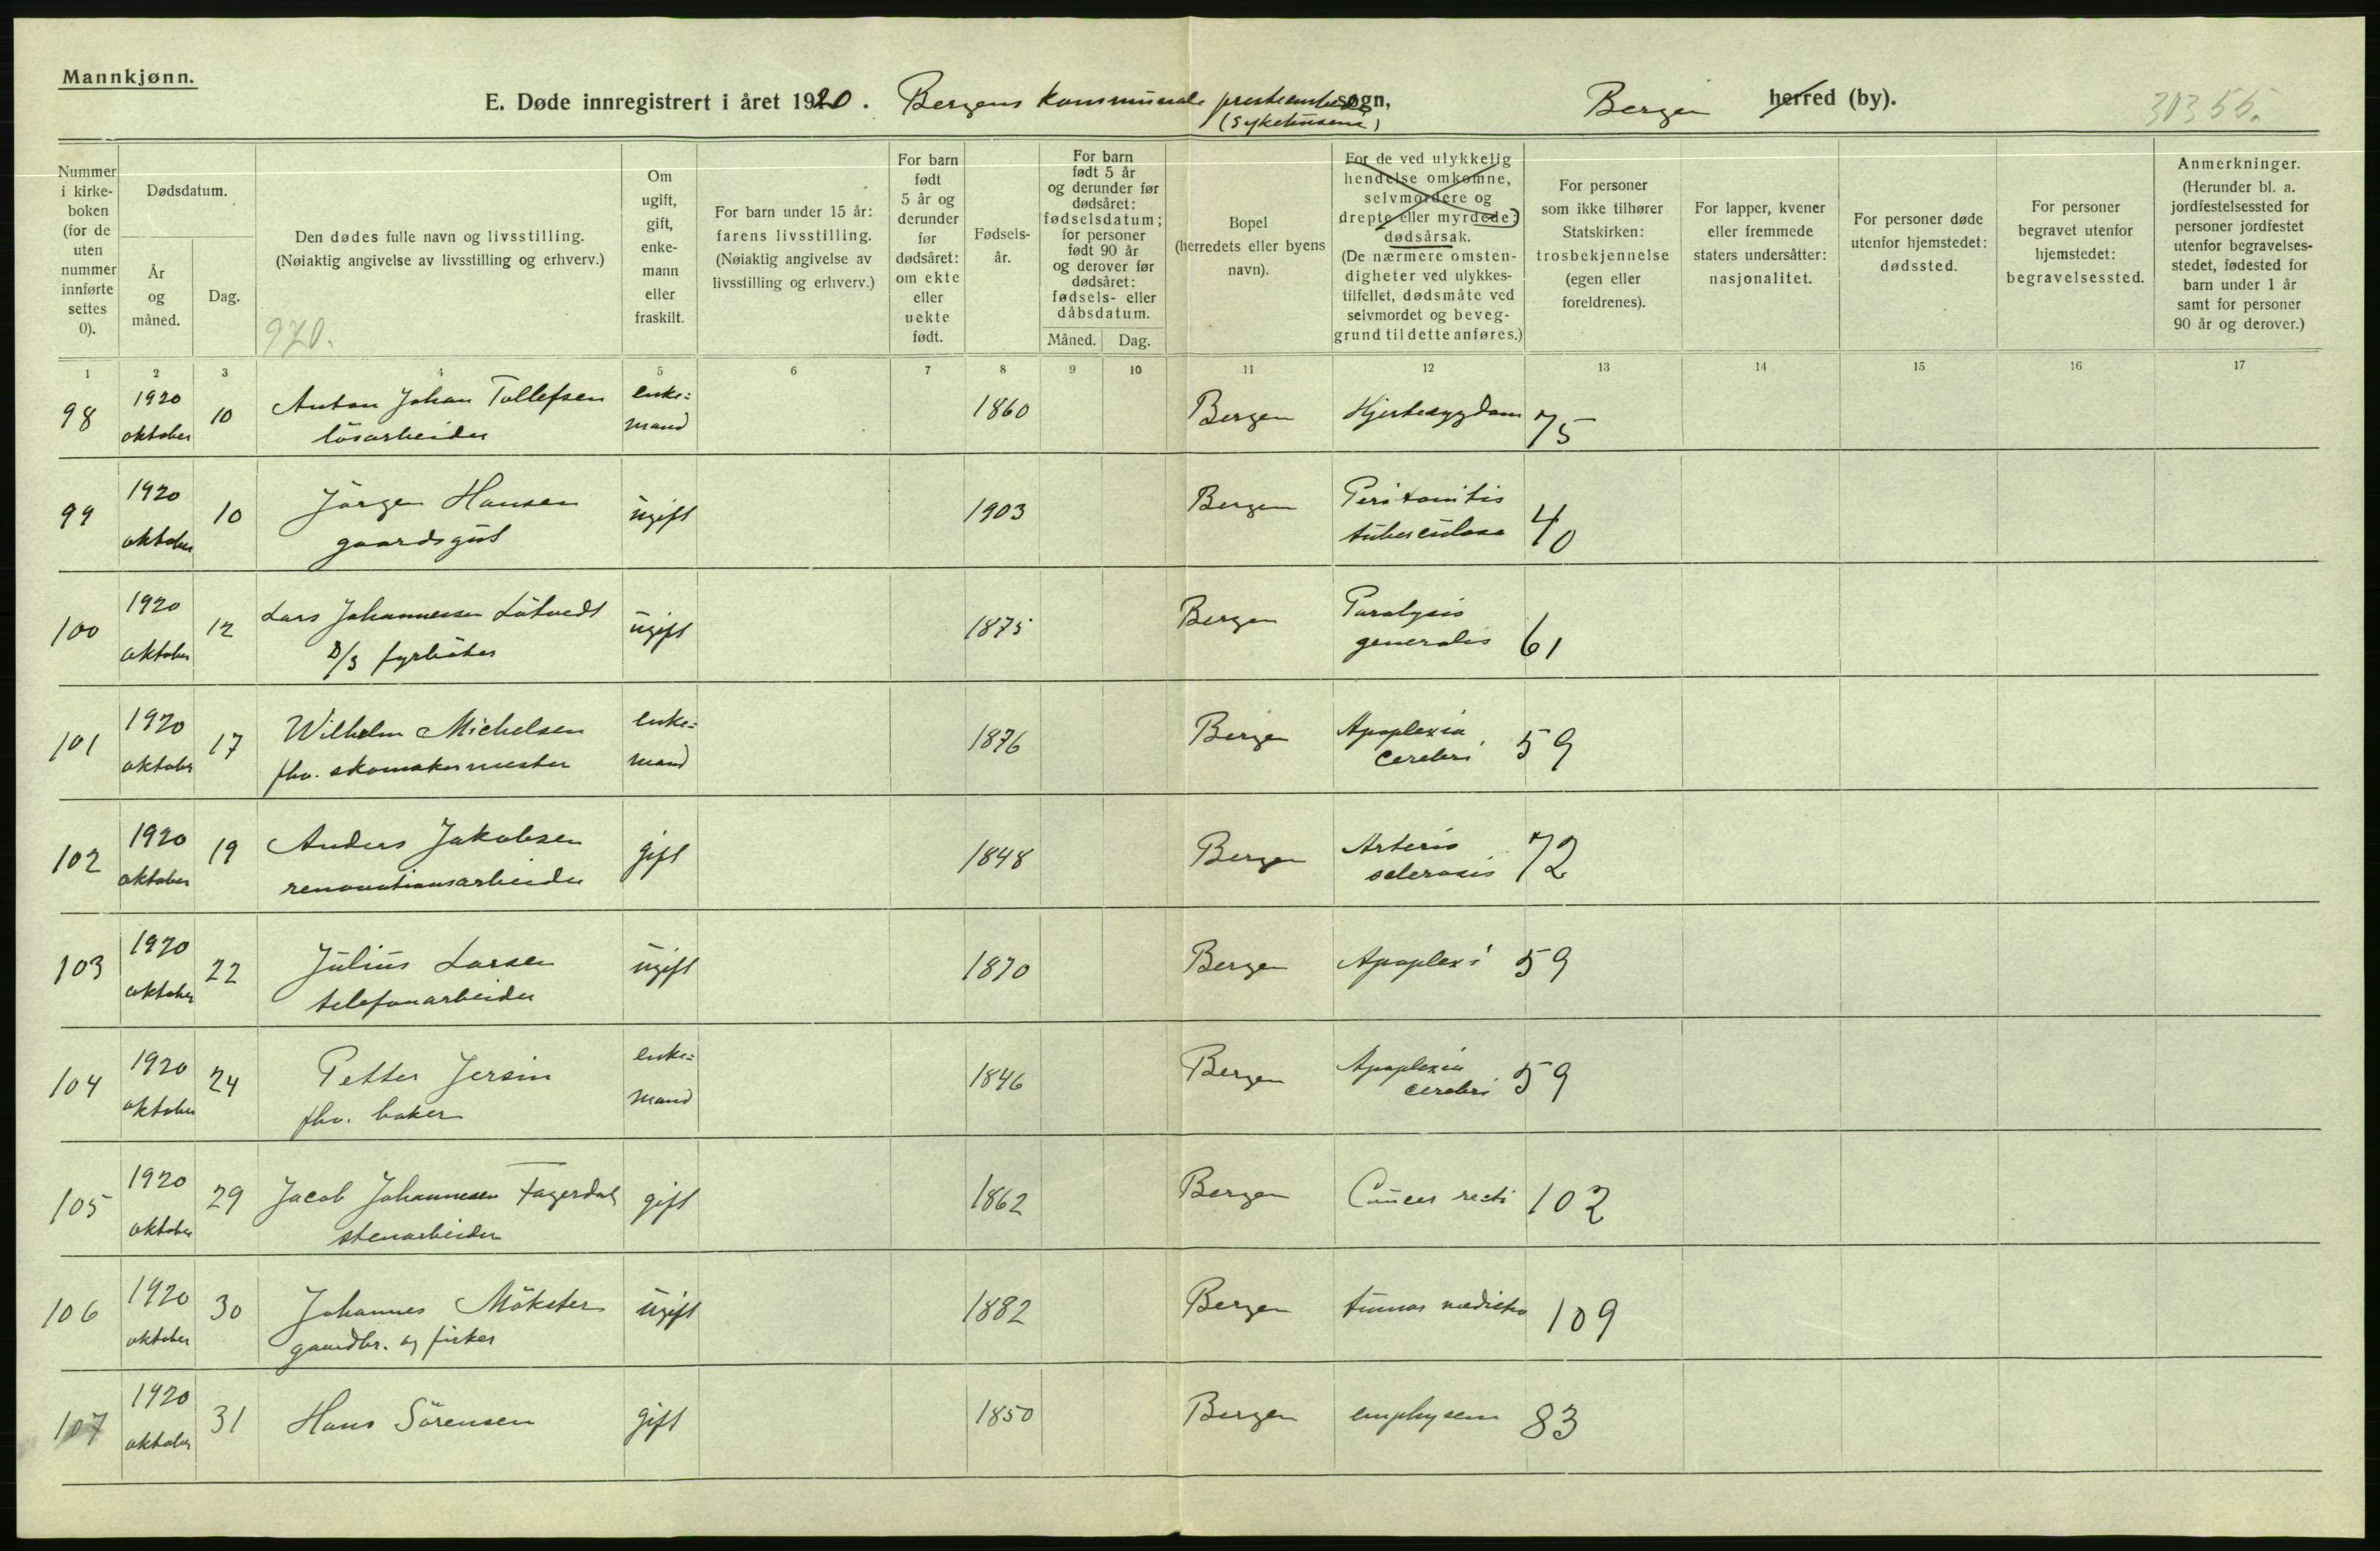 Mannkjønn.
E. Døde innregistrert i året 1920. Bergens kommunale presteembede sogn, Bergen herred (by). 30355.
(Sykehusene)
Nummer i kirkeboken (for de uten nummer innførte settes 0).
Dødsdatum.
År og måned.
Dag.
Den dødes fulle navn og livsstilling.
(Nøiaktig angivelse av livsstilling og erhverv.)
920.
Om ugift, gift, enkemann eller fraskilt.
For barn under 15 år: farens livsstilling.
(Nøiaktig angivelse av livsstilling og erhverv.)
For barn født 5 år og derunder før dødsåret: om ekte eller uekte født.
Fødselsår.
For barn født 5 år og derunder før dødsåret: fødselsdatum; for personer født 90 år og derover før dødsåret: fødsels- eller dåbsdatum.
Måned. Dag.
Bopel (herredets eller byens navn).
For de ved ulykkelig hendelse omkomne, selvmordere og drepte eller myrdede: dødsårsak.
(De nærmere omstendigheter ved ulykkestilfellet, dødsmåte ved selvmordet og beveggrund til dette anføres.)
For personer som ikke tilhører Statskirken: trosbekjennelse (egen eller foreldrenes).
For lapper, kvener eller fremmede staters undersåtter: nasjonalitet.
For personer døde utenfor hjemstedet: dødssted.
For personer begravet utenfor hjemstedet: begravelsessted.
Anmerkninger.
(Herunder bl. a. jordfestelsessted for personer jordfestet utenfor begravelsesstedet, fødested for barn under 1 år samt for personer 90 år og derover.)
1 2 3 4 5 6 7 8 9 10 11 12 13 14 15 16 17
98 1920 oktober 10 Anton Johan Tollefsen løsarbeider enke=mand 1860 Bergen Hjertesygdom 75
99 1920 oktober 10 Jörgen Hansen gaardsgut ugift 1903 Bergen Peritonitis tuberculosa 40
100 1920 oktober 12 Lars Johannesen Lötvedt D/S fyrbøter ugift 1875 Bergen Paralysis generalis 61
101 1920 oktober 17 Wilhelm Michelsen fhv. skomakermester enke=mand 1876 Bergen Apoplexia cerebri 59
102 1920 oktober 19 Anders Jakobsen renovationsarbeider gift 1848 Bergen Arterio sclerosis 72
103 1920 oktober 22 Julius Larsen telefonarbeider ugift 1870 Bergen Apoplexi 59
104 1920 oktober 24 Petter Jersin fhv. baker enke=mand 1846 Bergen Apoplexia cerebri 59
105 1920 oktober 29 Jacob Johannesen Fagerdal stenarbeider gift 1862 Bergen Cancer recti 102
106 1920 oktober 30 Johannes Mökster gaardbr. og fisker ugift 1882 Bergen 109
107 1920 oktober 31 Hans Sörensen gift 1850 Bergen emphysem 83